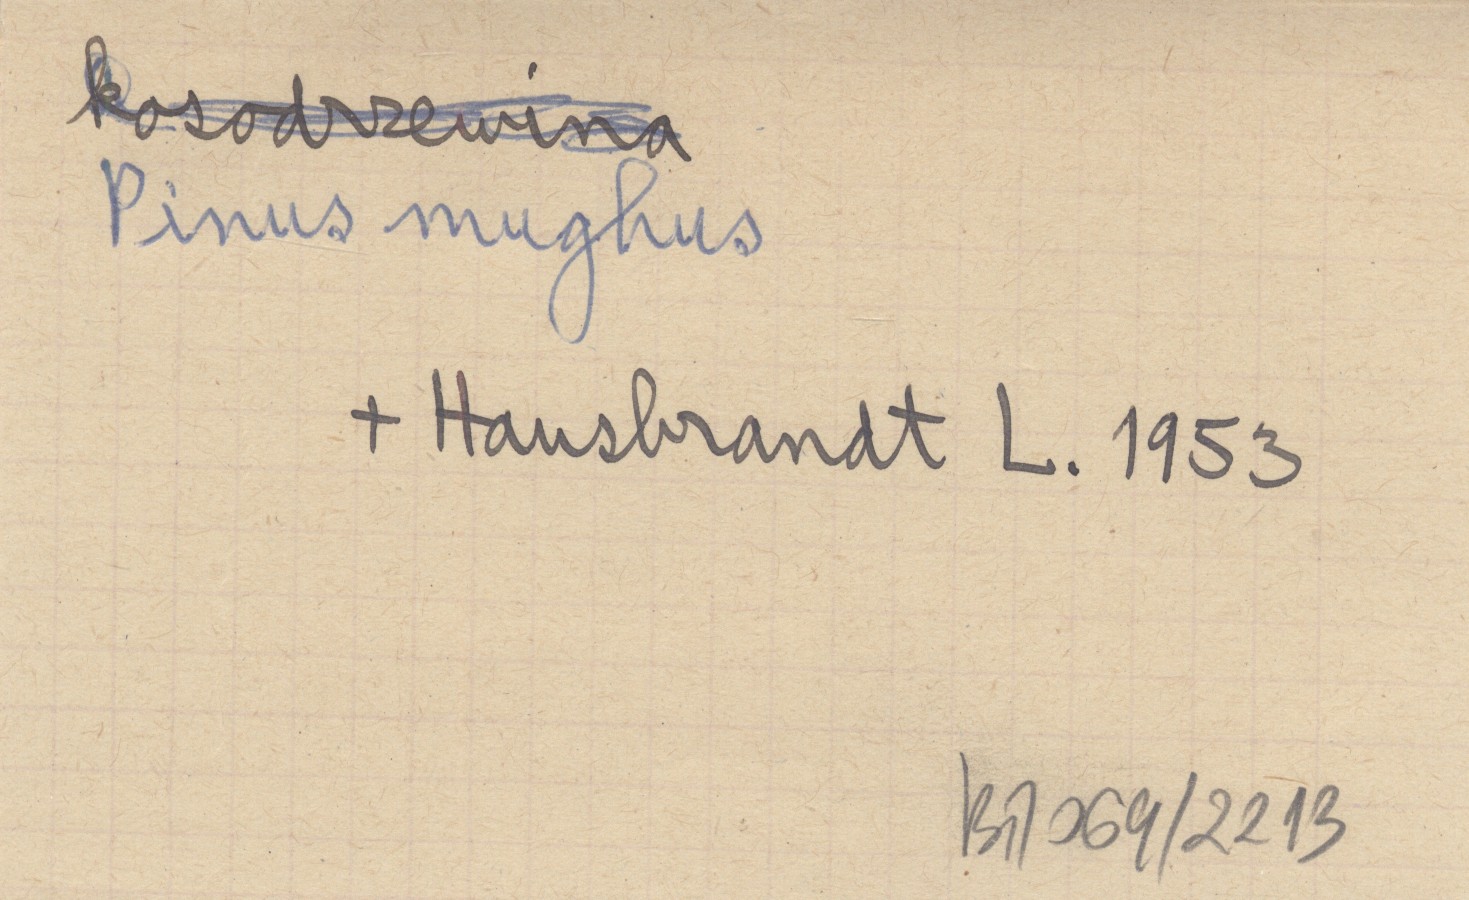 kosodrzewina
Pinus mughus
+ Hausbrandt L. 1953
069/2213